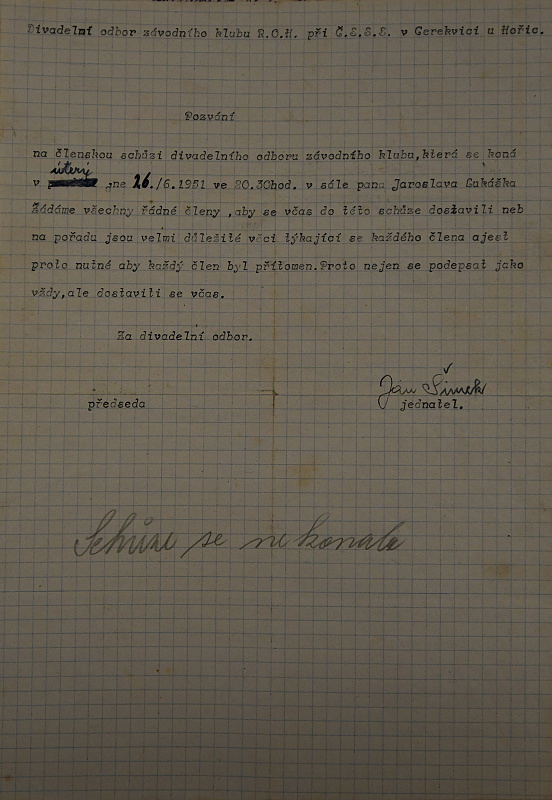 Divadelní odbor závodního klubu R.O.H. při Č.S.S.S. v Cerekvici u Hořic.
Pozvání
na členskou schůzi divadelního odboru závodního klubu,která se koná
v úterý dne 26./6.1951 ve 20.30hod. v sále pana Jaroslava Lukáška
Žádáme všechny řádné členy ,aby se včas do této schůze dostavili neb
na pořadu jsou velmi důležité věci týkající se každého člena ajest
proto nutné aby každý člen byl přítomen.Proto nejen se podepsat jako
vždy,ale dostavili se včas.
Za divadelní odbor.
Jan Šimek
předseda jednatel.
Schůze se nekonala